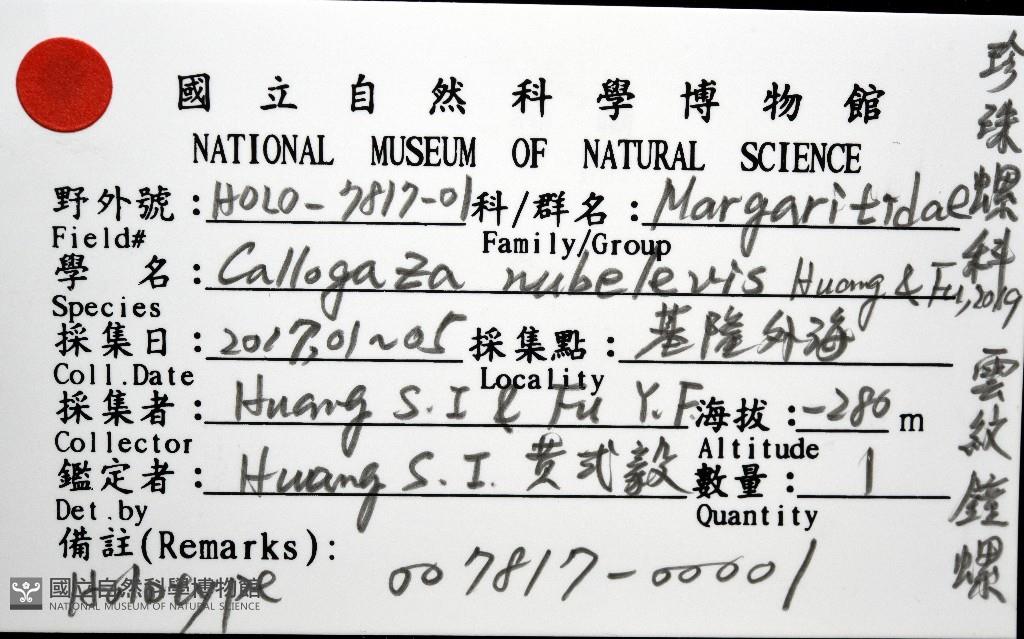 國立自然科學博物館
NATIONAL MUSEUM OF NATURAL SCIENCE
野外號：HOLO-7817-01 科/群名：Margaritidae
Field# Family/Group
學 名：Callogaza nubelevis Huang & Fu, 2019
Species
採集日：2017,01~05 採集點：基隆外海
Coll.Date Locality
採集者：Huang S.I & Fu Y.F. 海拔：-286 m
Collector Altitude
鑑定者：Huang S.I. 黄式毅 數量：1
Det.by Quantity
備註(Remarks)：
Holotype 007817-00001
珍珠螺科 雲紋鐘螺
國立自然科學博物館
NATIONAL MUSEUM OF NATURAL SCIENCE